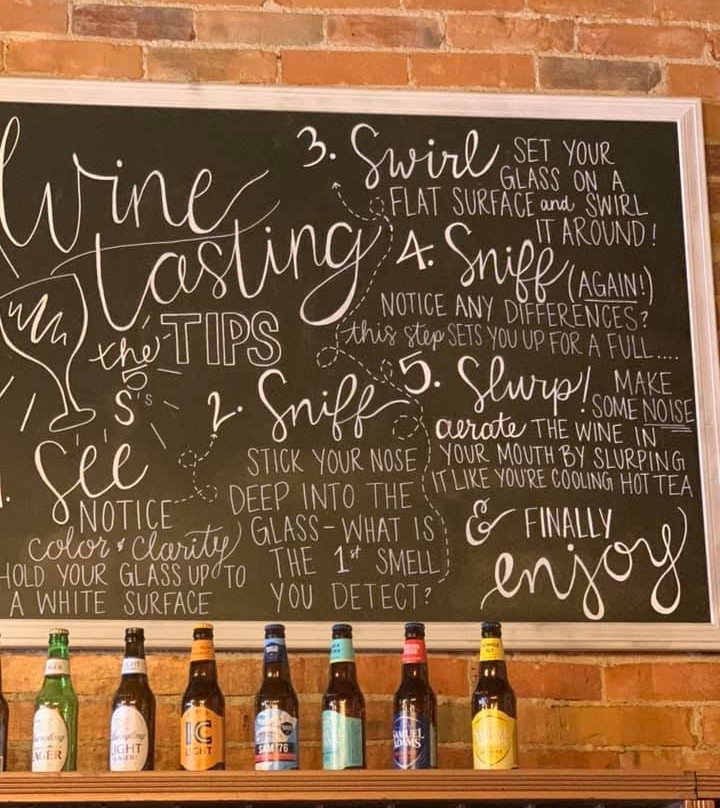 Wine
tasting
the TIPS
5
S's
1. See
NOTICE
color & clarity
HOLD YOUR GLASS UP TO
A WHITE SURFACE
2. Sniff
STICK YOUR NOSE
DEEP INTO THE
GLASS - WHAT IS
THE 1st SMELL
YOU DETECT?
3. Swirl SET YOUR
GLASS ON A
FLAT SURFACE and SWIRL
IT AROUND!
4. Sniff (AGAIN!)
NOTICE ANY DIFFERENCES?
this step SETS YOU UP FOR A FULL....
5. Slurp! MAKE
SOME NOISE
aerate THE WINE IN
YOUR MOUTH BY SLURPING
IT LIKE YOU'RE COOLING HOT TEA
& FINALLY
enjoy
LAGER
LIGHT
IC
LIGHT
SAM '76
SAMUEL
ADAMS